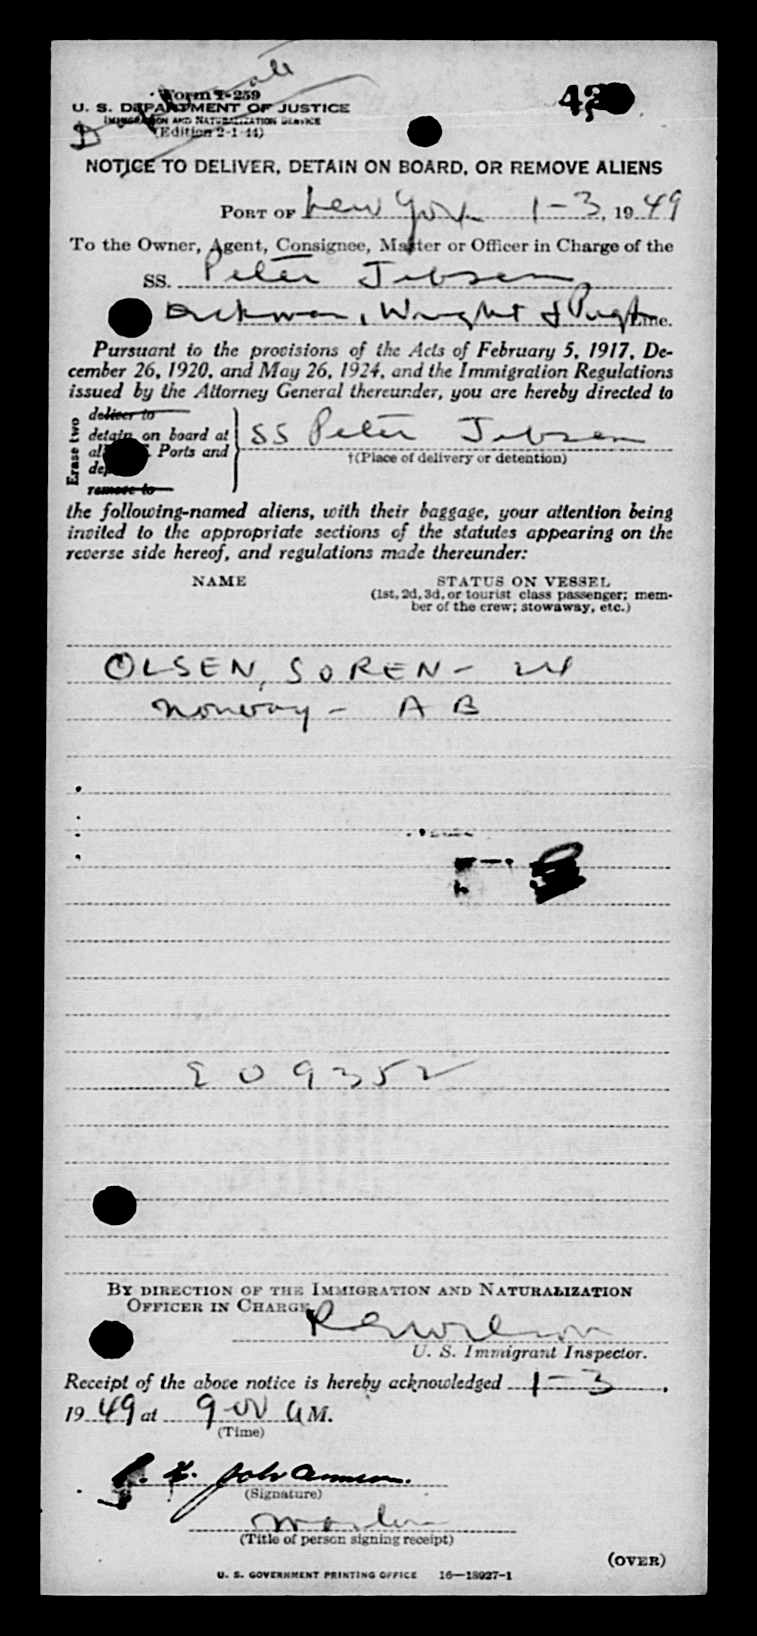 Duplicate
Form I-259
U. S. DEPARTMENT OF JUSTICE
IMMIGRATION AND NATURALIZATION SERVICE
(Edition 2-1-44)
NOTICE TO DELIVER, DETAIN ON BOARD, OR REMOVE ALIENS
PORT OF New York 1-3, 1949
To the Owner, Agent, Consignee, Master or Officer in Charge of the
SS. Peter Jebsen
Wright & Pugh Line.
Pursuant to the provisions of the Acts of February 5, 1917, De-
cember 26, 1920, and May 26, 1924, and the Immigration Regulations
issued by the Attorney General thereunder, you are hereby directed to
Erase two
deliver to
detain on board at
all Ports and
remove to
SS Peter Jebsen
†(Place of delivery or detention)
the following-named aliens, with their baggage, your attention being
invited to the appropriate sections of the statutes appearing on the
reverse side hereof, and regulations made thereunder:
NAME STATUS ON VESSEL
(1st, 2d, 3d, or tourist class passenger; mem-
ber of the crew; stowaway, etc.)
OLSEN, SOREN - 24
Norway - AB
E 09352
BY DIRECTION OF THE IMMIGRATION AND NATURALIZATION
OFFICER IN CHARGE
U. S. Immigrant Inspector.
Receipt of the above notice is hereby acknowledged 1-3,
1949 at 9-00 AM.
(Time)
Johannesen.
(Signature)
Master
(Title of person signing receipt)
(OVER)
U. S. GOVERNMENT PRINTING OFFICE 16—18927-1